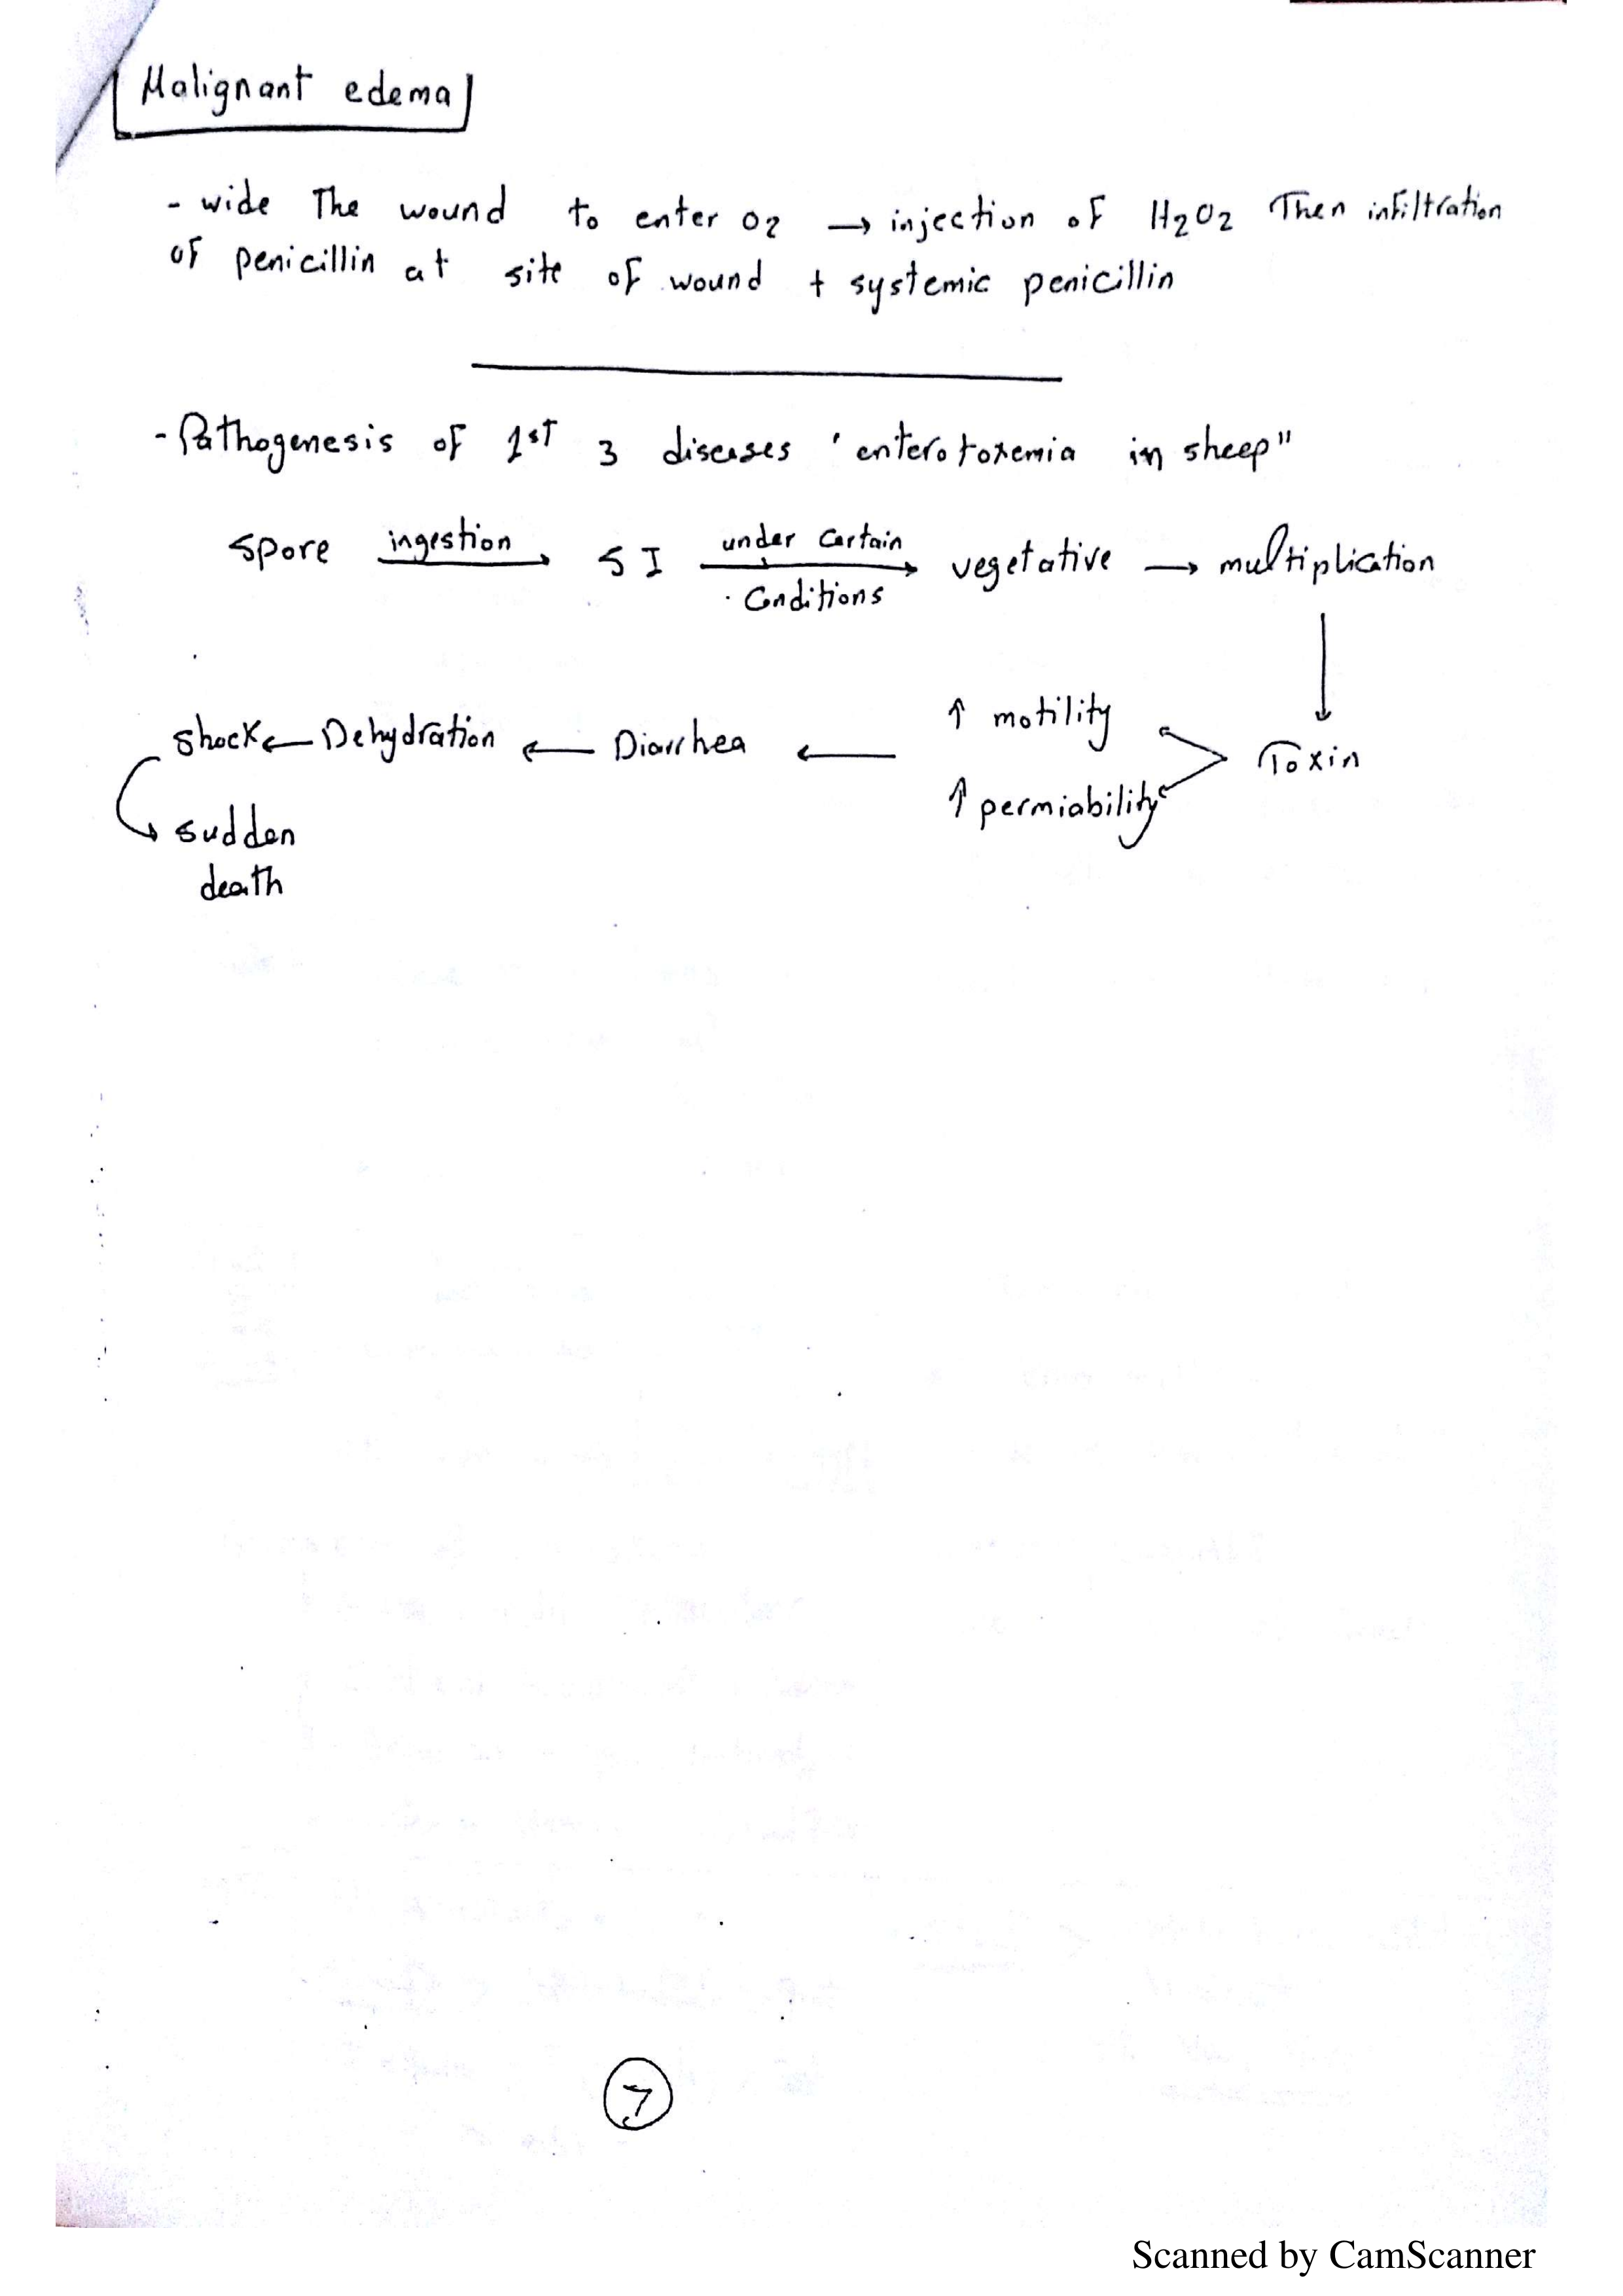 Malignant edema
- wide The wound to enter O2 → injection of H2O2 Then infiltration
of penicillin at site of wound + systemic penicillin
- Pathogenesis of 1st 3 diseases ' enterotoxemia in sheep"
spore ingestion → SI under certain conditions → vegetative → multiplication
↓
shock ← Dehydration ← Diarrhea ← ↑ motility Toxin
↑ permiability
sudden
death
7
Scanned by CamScanner